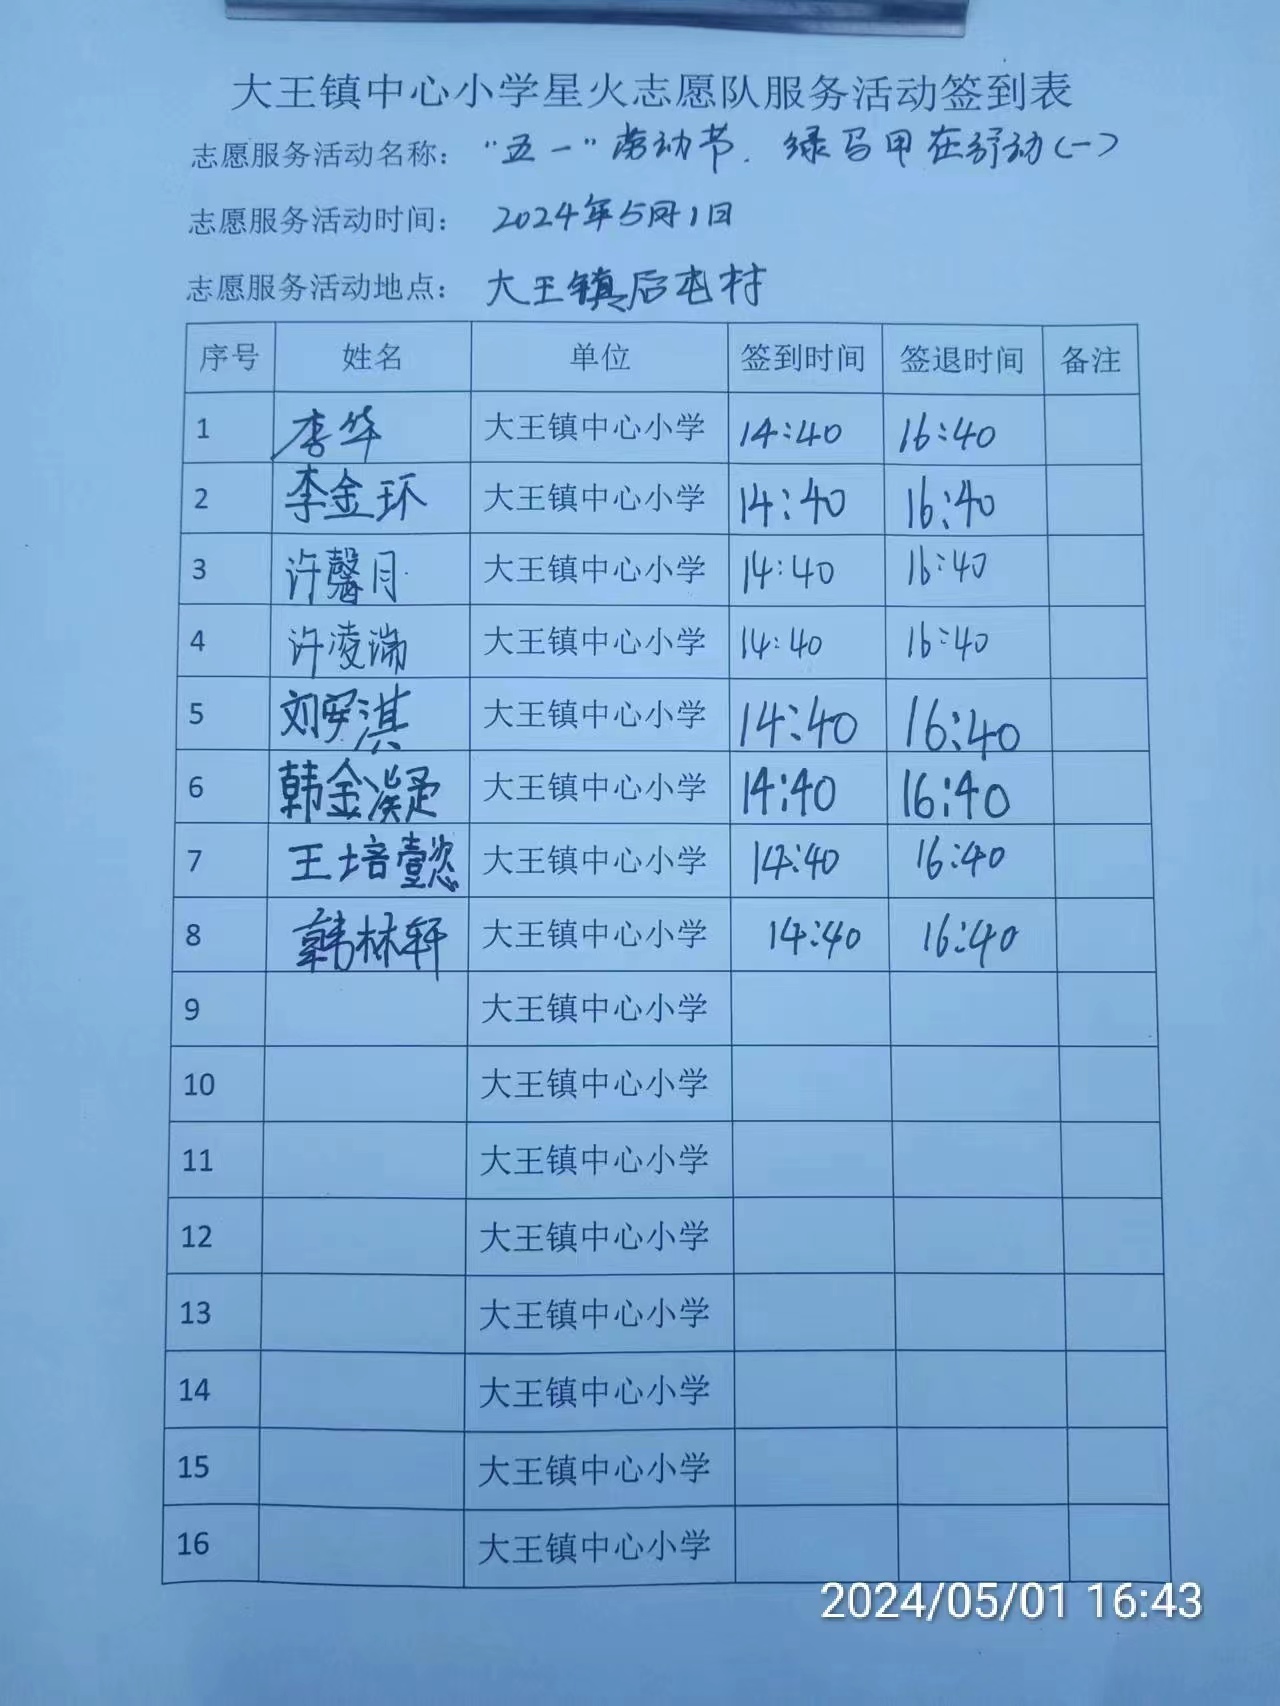 大王镇中心小学星火志愿队服务活动签到表
志愿服务活动名称： “五一”劳动节．绿马甲在行动（一）
志愿服务活动时间： 2024年5月1日
志愿服务活动地点： 大王镇后屯村
序号 姓名 单位 签到时间 签退时间 备注
1 李华 大王镇中心小学 14:40 16:40
2 李金环 大王镇中心小学 14:40 16:40
3 许馨月 大王镇中心小学 14:40 16:40
4 许凌瑞 大王镇中心小学 14:40 16:40
5 刘安淇 大王镇中心小学 14:40 16:40
6 韩金凝 大王镇中心小学 14:40 16:40
7 王培懿 大王镇中心小学 14:40 16:40
8 韩林轩 大王镇中心小学 14:40 16:40
9 大王镇中心小学
10 大王镇中心小学
11 大王镇中心小学
12 大王镇中心小学
13 大王镇中心小学
14 大王镇中心小学
15 大王镇中心小学
16 大王镇中心小学
2024/05/01 16:43